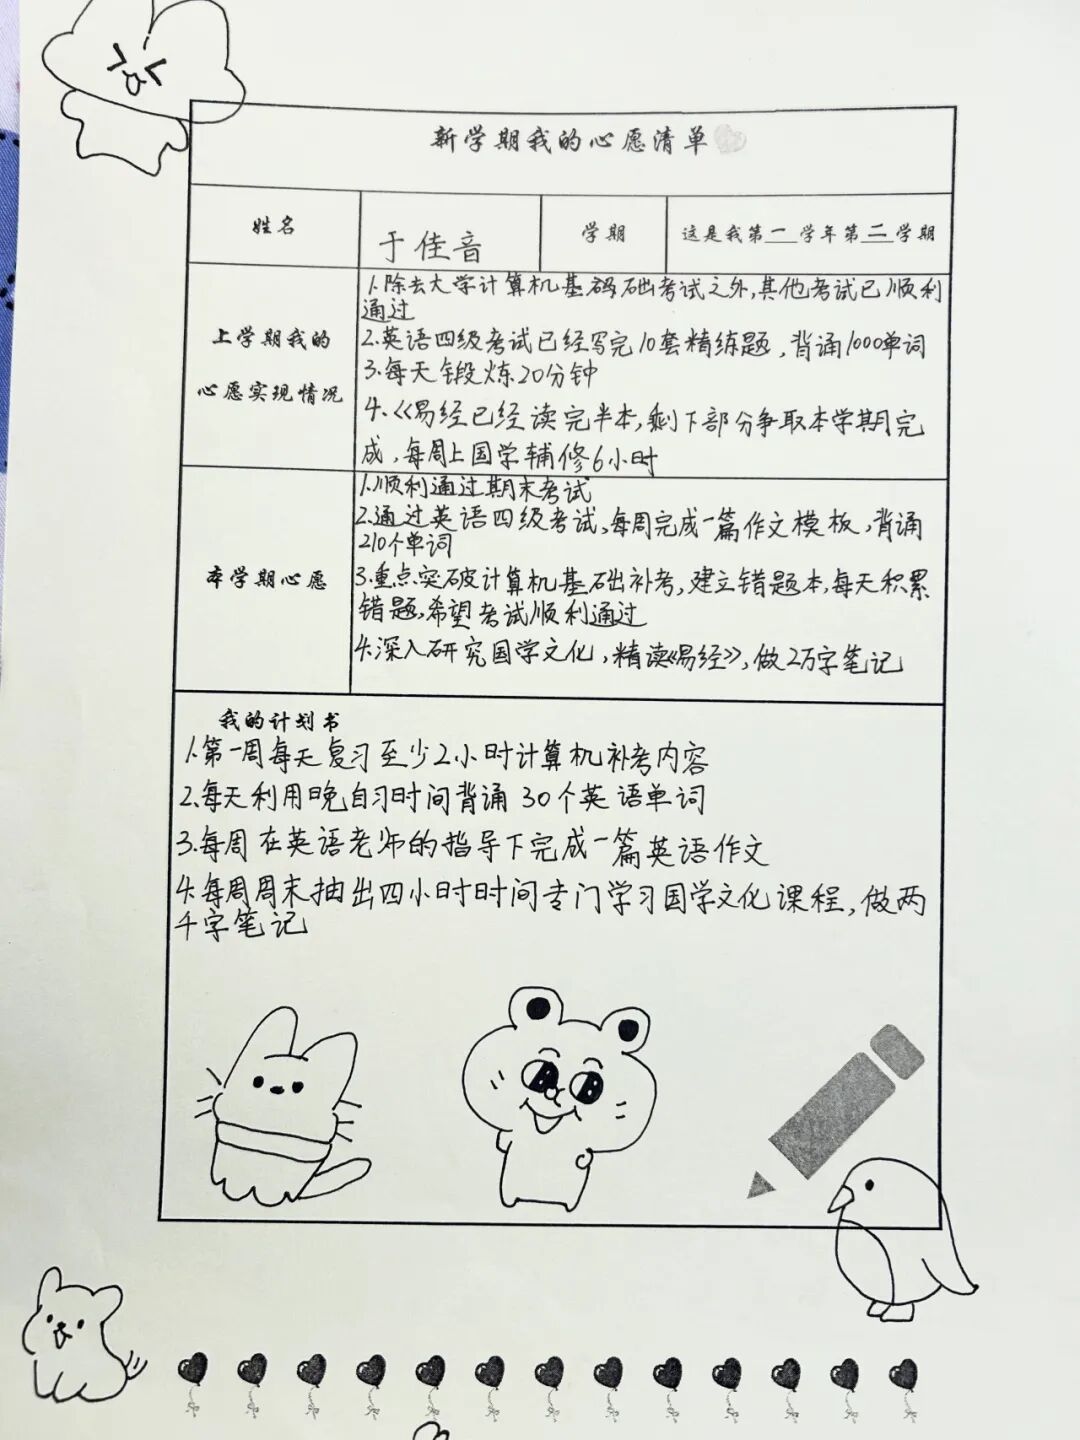 新学期我的心愿清单
姓名
于佳音
学期
这是我第一学年第二学期
上学期我的
心愿实现情况
1.除去大学计算机基码础考试之外,其他考试已顺利
通过
2.英语四级考试已经写完10套精练题,背诵1000单词
3.每天锻炼20分钟
4.《易经已经读完半本,剩下部分争取本学期完
成,每周上国学辅修6小时
本学期心愿
1.顺利通过期末考试
2.通过英语四级考试,每周完成一篇作文模板,背诵
210个单词
3.重点突破计算机基础补考,建立错题本,每天积累
错题,希望考试顺利通过
4.深入研究国学文化,精读《易经》,做2万字笔记
我的计划书
1.第一周每天复习至少2小时计算机补考内容
2.每天利用晚自习时间背诵30个英语单词
3.每周在英语老师的指导下完成一篇英语作文
4.每周周末抽出四小时时间专门学习国学文化课程,做两
千字笔记